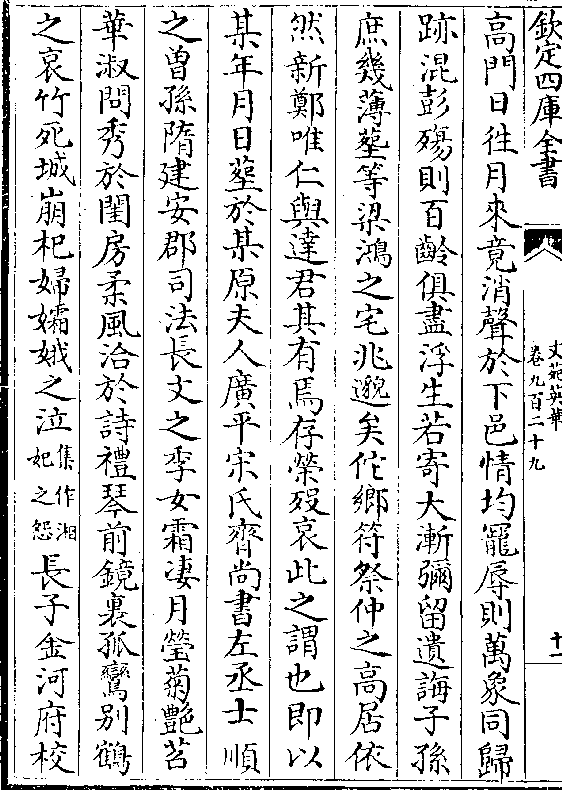 欽定四庫全書
文苑英華
卷九百二十九
十一
高門日往月來竟消聲於下邑情均寵辱則萬象同歸
跡混彭殤則百齡俱盡浮生若寄大漸彌留遺誨子孫
庶幾薄塟等梁鴻之宅兆邈矣佗鄉符祭仲之高居依
然新鄭唯仁與達君其有焉存榮歿哀此之謂也即以
某年月日塟於某原夫人廣平宋氏齊尚書左丞士順
之曾孫隋建安郡司法長文之季女霜凄月瑩菊艷苕
華淑問秀於閨房柔風洽於詩禮琴前鏡裏孤鸞別鶴
之哀竹死城崩杞婦孀娥之泣集作湘妃之怨長子金河府校